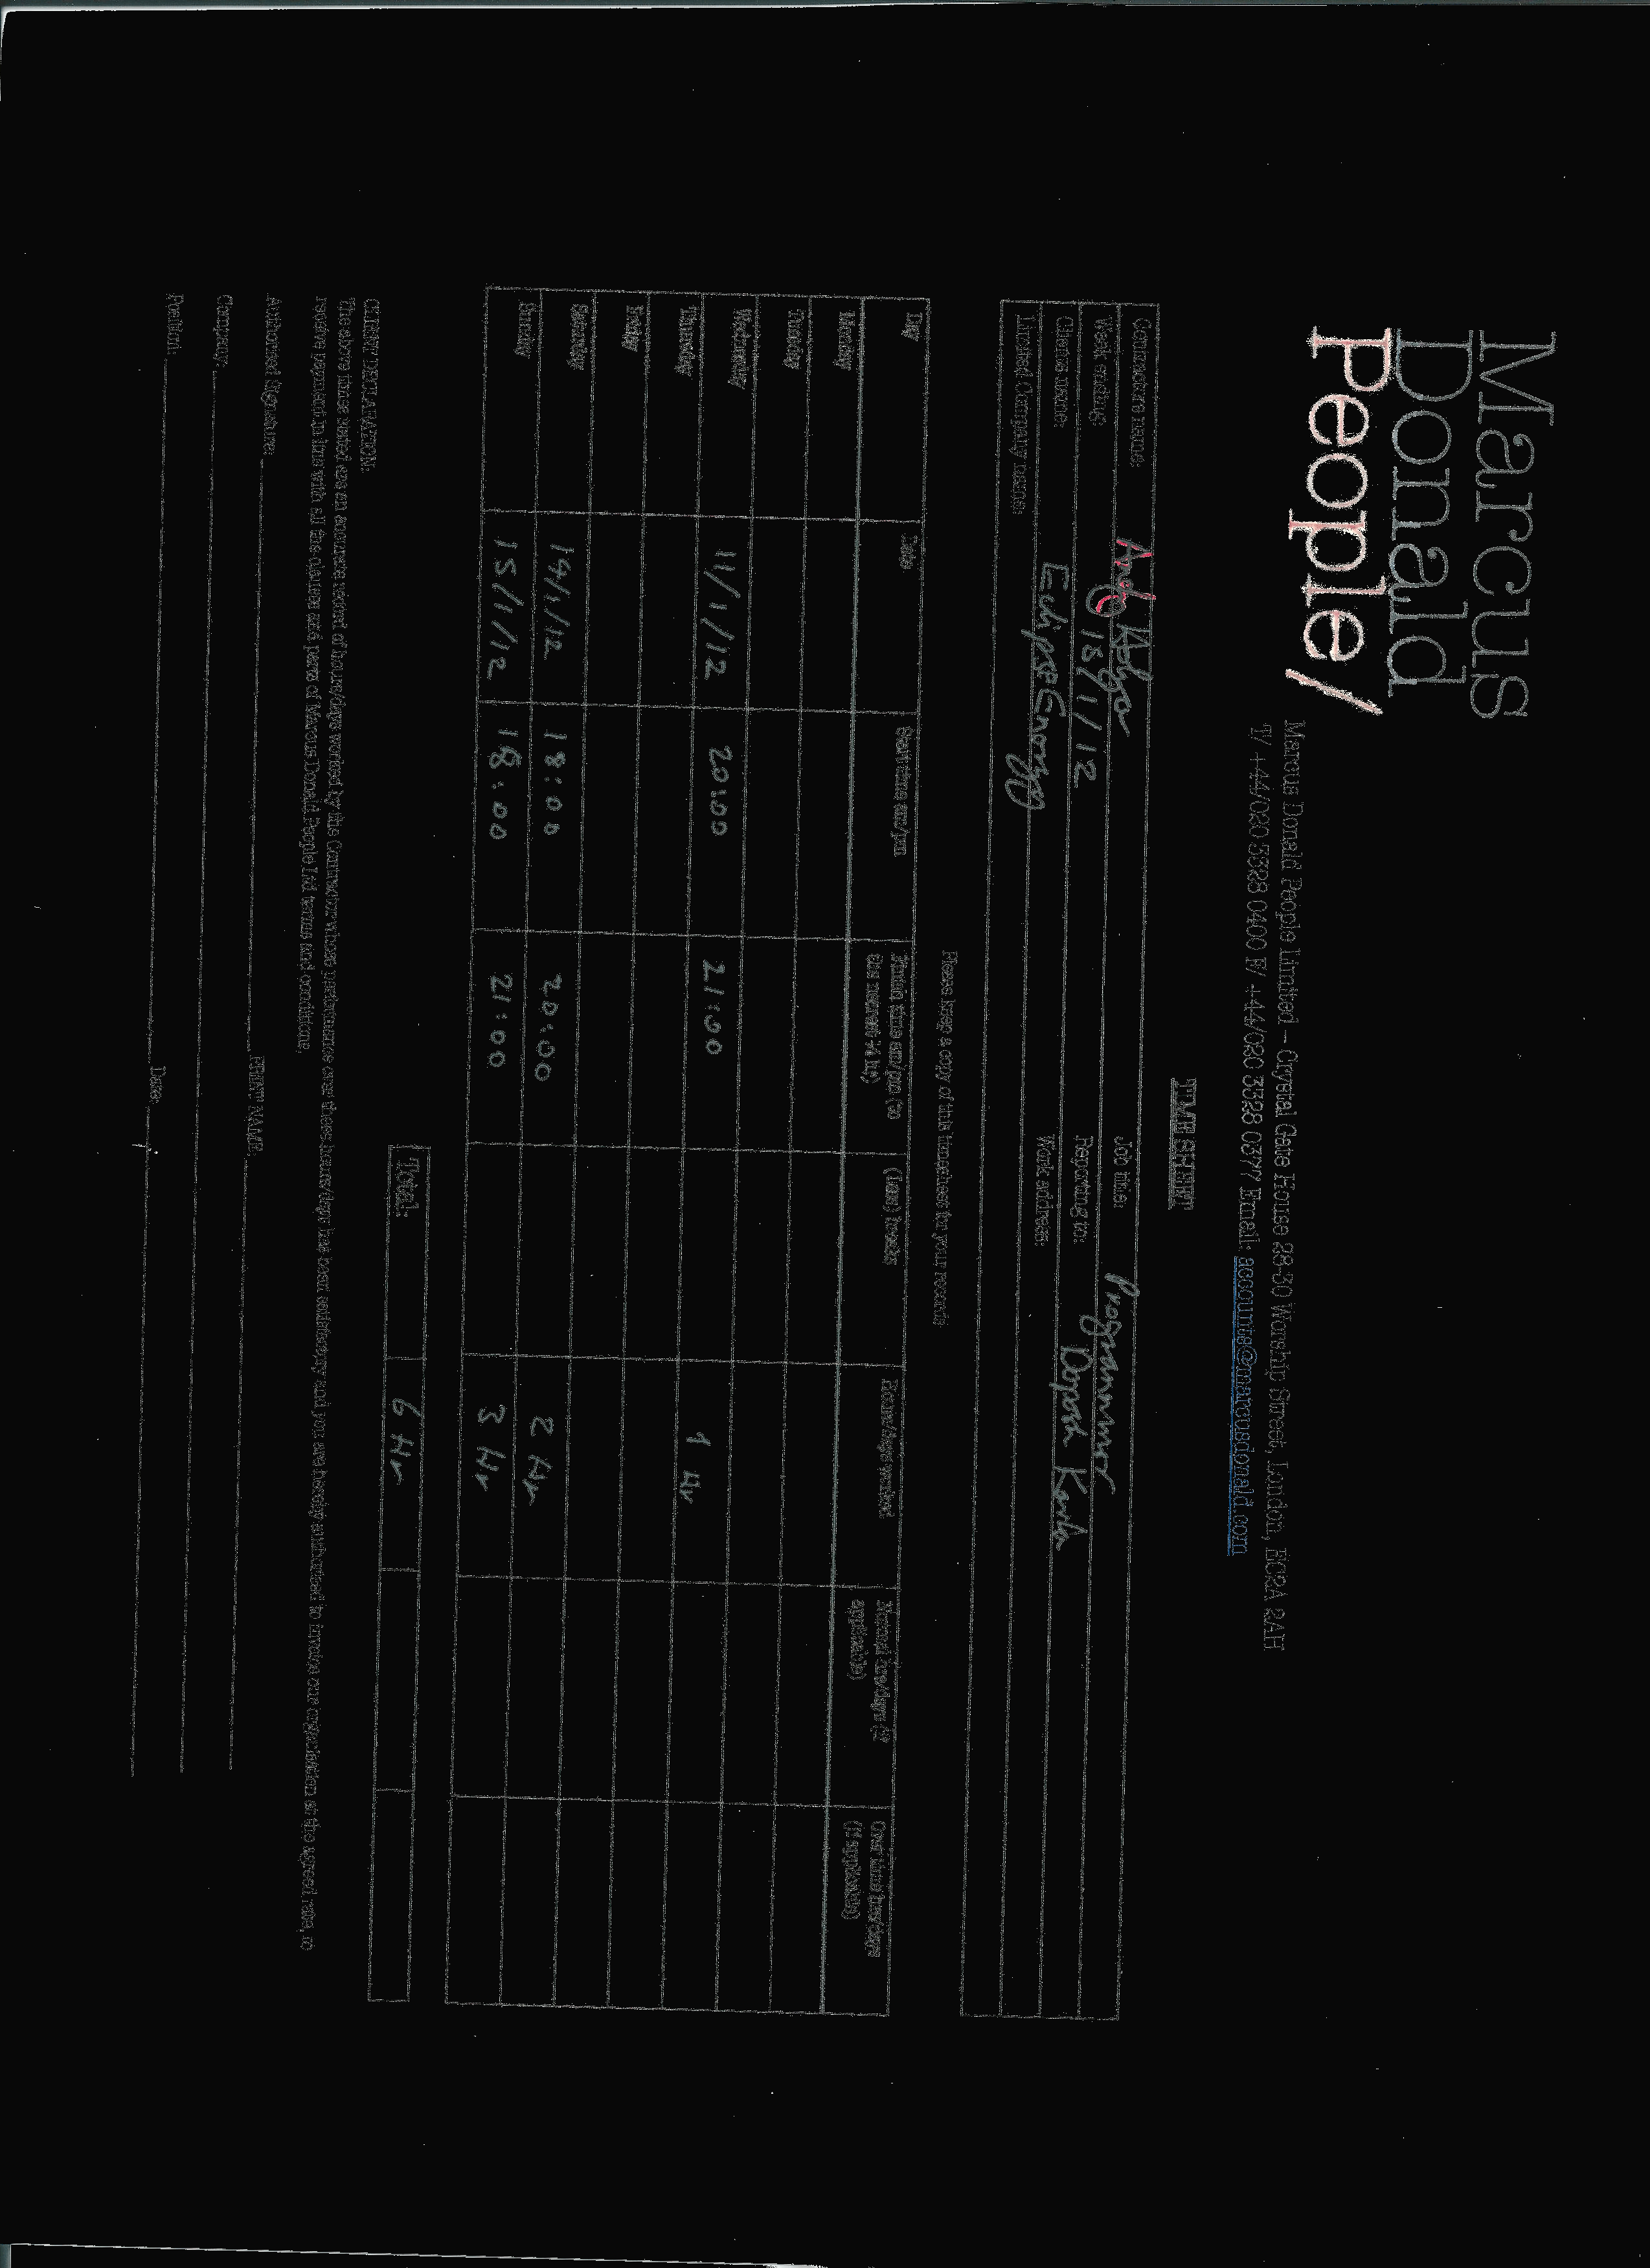 Marcus
Donald
People/
Marcus Donald People Limited – Crystal Gate House 28-30 Worship Street, London, EC2A 2AH
T/ +44/020 3328 0400 F/ +44/020 3328 0377 Email: accounts@marcusdonald.com
TIME SHEET
Contractors name: Job title: Programmer
Week ending: 15/1/12 Reporting to:
Clients name: Eclipse Energy Work address:
Limited Company name:
Please keep a copy of this timesheet for your records
Day Date Start time am/pm Finish time am/pm (to the nearest ¼ hr) (Less) breaks Hours/days worked Normal hrs/days (if applicable) Over time hrs/days (if applicable)
Monday
Tuesday
Wednesday 11/1/12 20:00 21:00 1 Hr
Thursday
Friday
Saturday 14/1/12 18:00 20:00 2 Hr
Sunday 15/1/12 18:00 21:00 3 Hr
Total: 6 Hr
CLIENT DECLARATION:
The above times stated are an accurate record of hours/days worked by the Contractor whose performance over these hours/days has been satisfactory and you are hereby authorised to invoice our organisation at the agreed rates, to
receive payment in line with all the clauses and parts of Marcus Donald People Ltd terms and conditions.
Authorised Signature: PRINT NAME:
Company:
Position: Date: